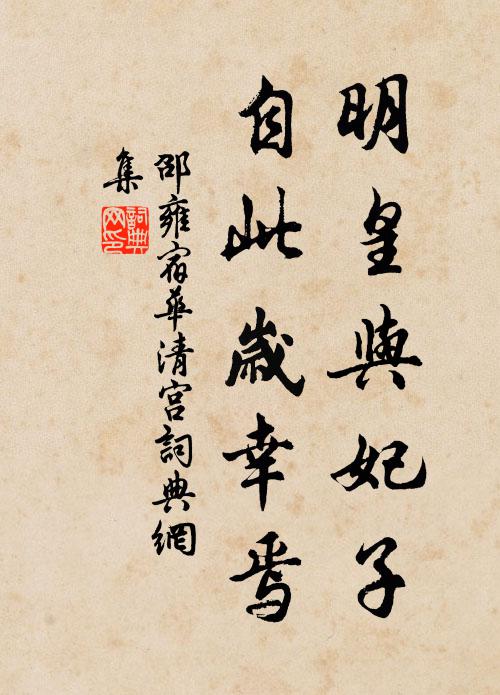 明皇與妃子
自此歲幸焉
邵雍宿華清宮詞典網
集
詞典網印